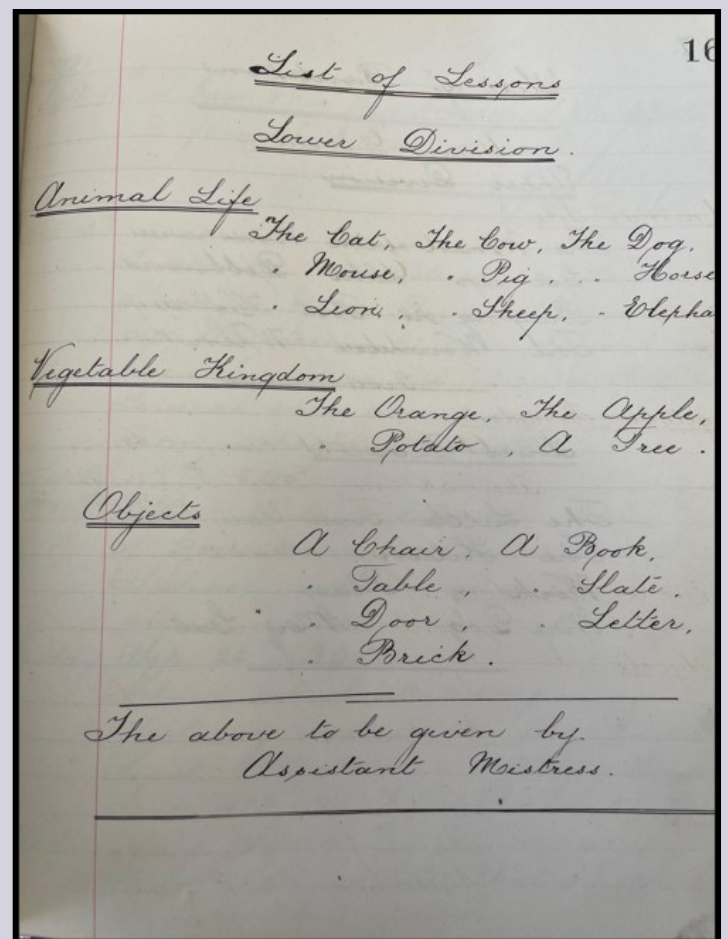 16
List of Lessons
Lower Division.
Animal Life
The Cat, The Cow, The Dog.
" Mouse, " Pig, " Horse
" Lion, " Sheep, " Elepha
Vegetable Kingdom
The Orange, The Apple,
" Potato, A Tree.
Objects
A Chair, A Book,
" Table, " Slate,
" Door, " Letter,
" Brick.
The above to be given by.
Assistant Mistress.